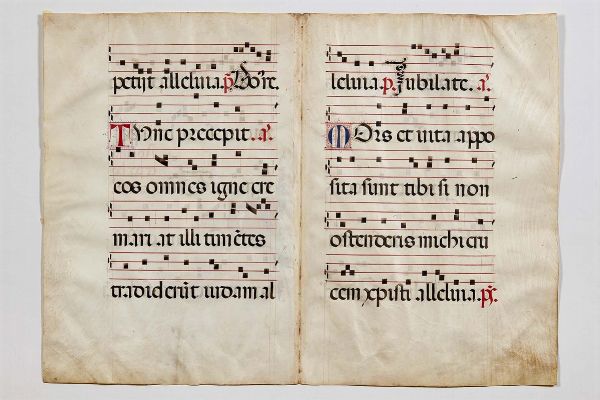 petijt alleluia. p̃.
Tunc precepit. a.
eos omnes igne cre
mari at illi timẽtes
tradiderũt iudam al
leluia. p. Jubilate. a.
Mors et uita appo
sita sunt tibi si non
ostenderis michi cru
cem xpisti alleluia. p̃.